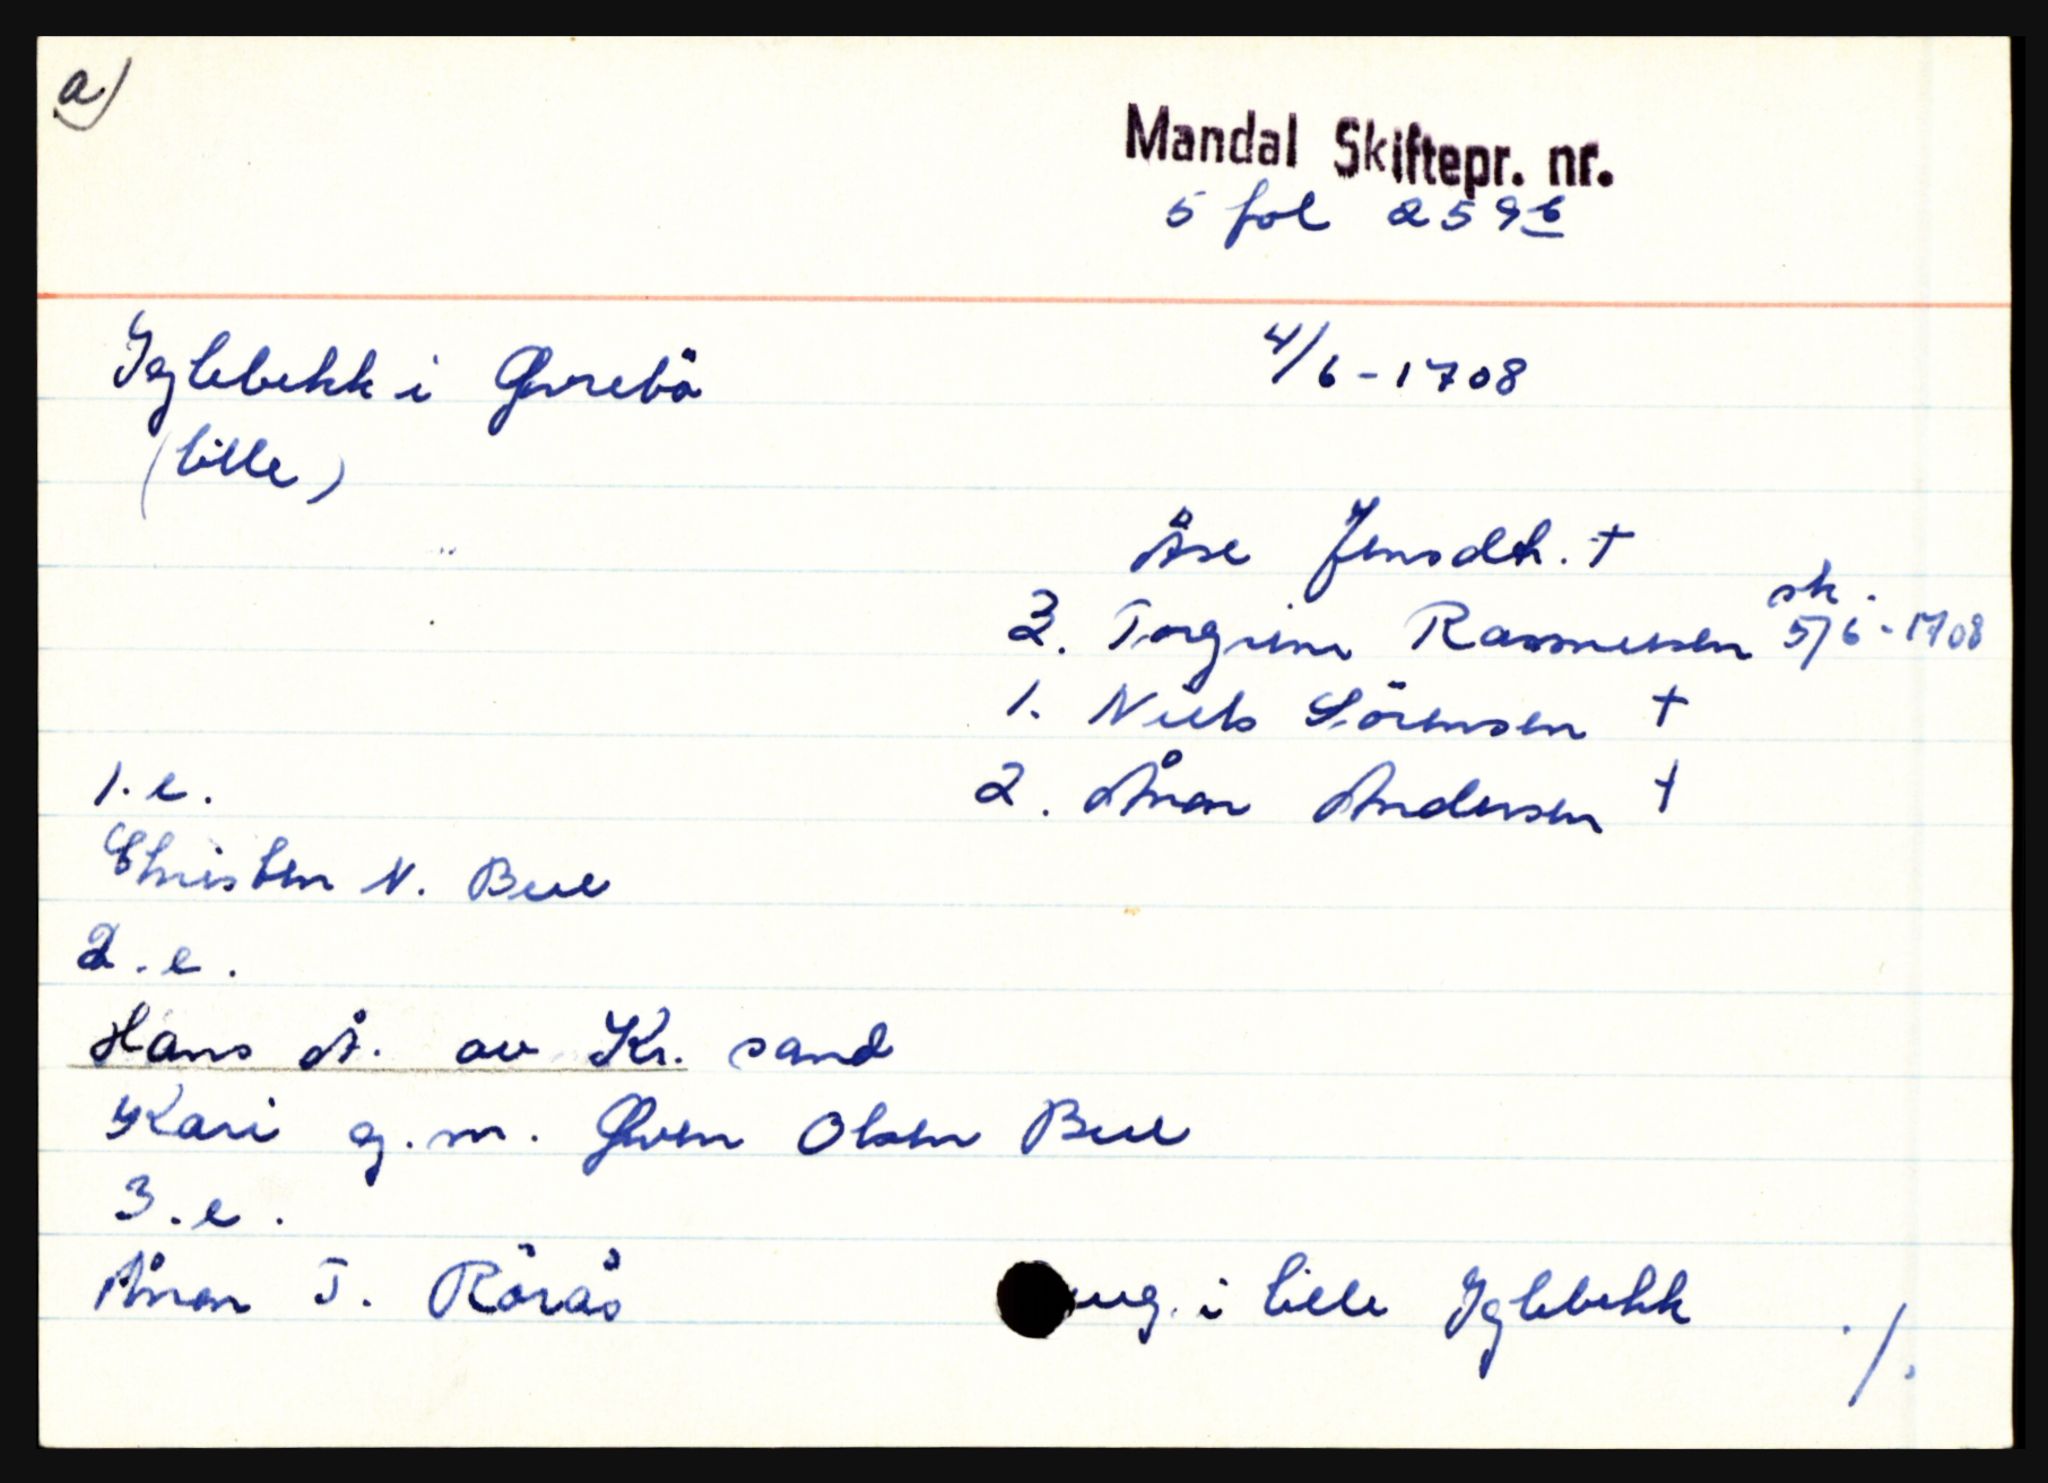 a)
Mandal Skiftepr. nr.
5 fol 259b
Iglebekk i Øvrebö 4/6-1708
(lille)
Åse Jensdtr. †
sk.
3. Torgrim Rasmussen 5/6-1708
1. Niels Sörensen †
1.e. 2. Ånon Andersen †
Christen N. Bue
2.e.
Hans A. av Kr.sand
Kari g.m. Øven Olsen Bue
3.e.
Ånon T. Röiås i lille Iglebekk ./.